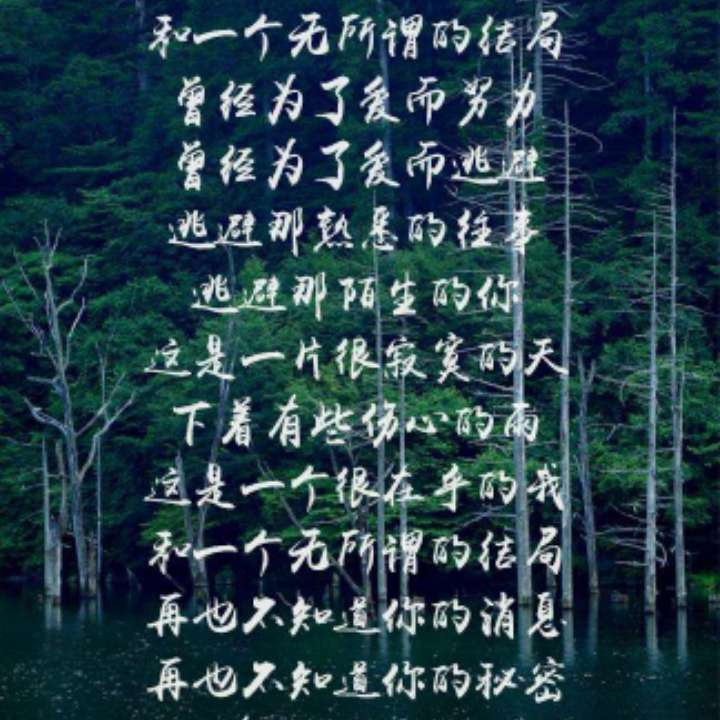 和一个无所谓的结局
曾经为了爱而努力
曾经为了爱而逃避
逃避那熟悉的往事
逃避那陌生的你
这是一片很寂寞的天
下着有些伤心的雨
这是一个很在乎的我
和一个无所谓的结局
再也不知道你的消息
再也不知道你的秘密